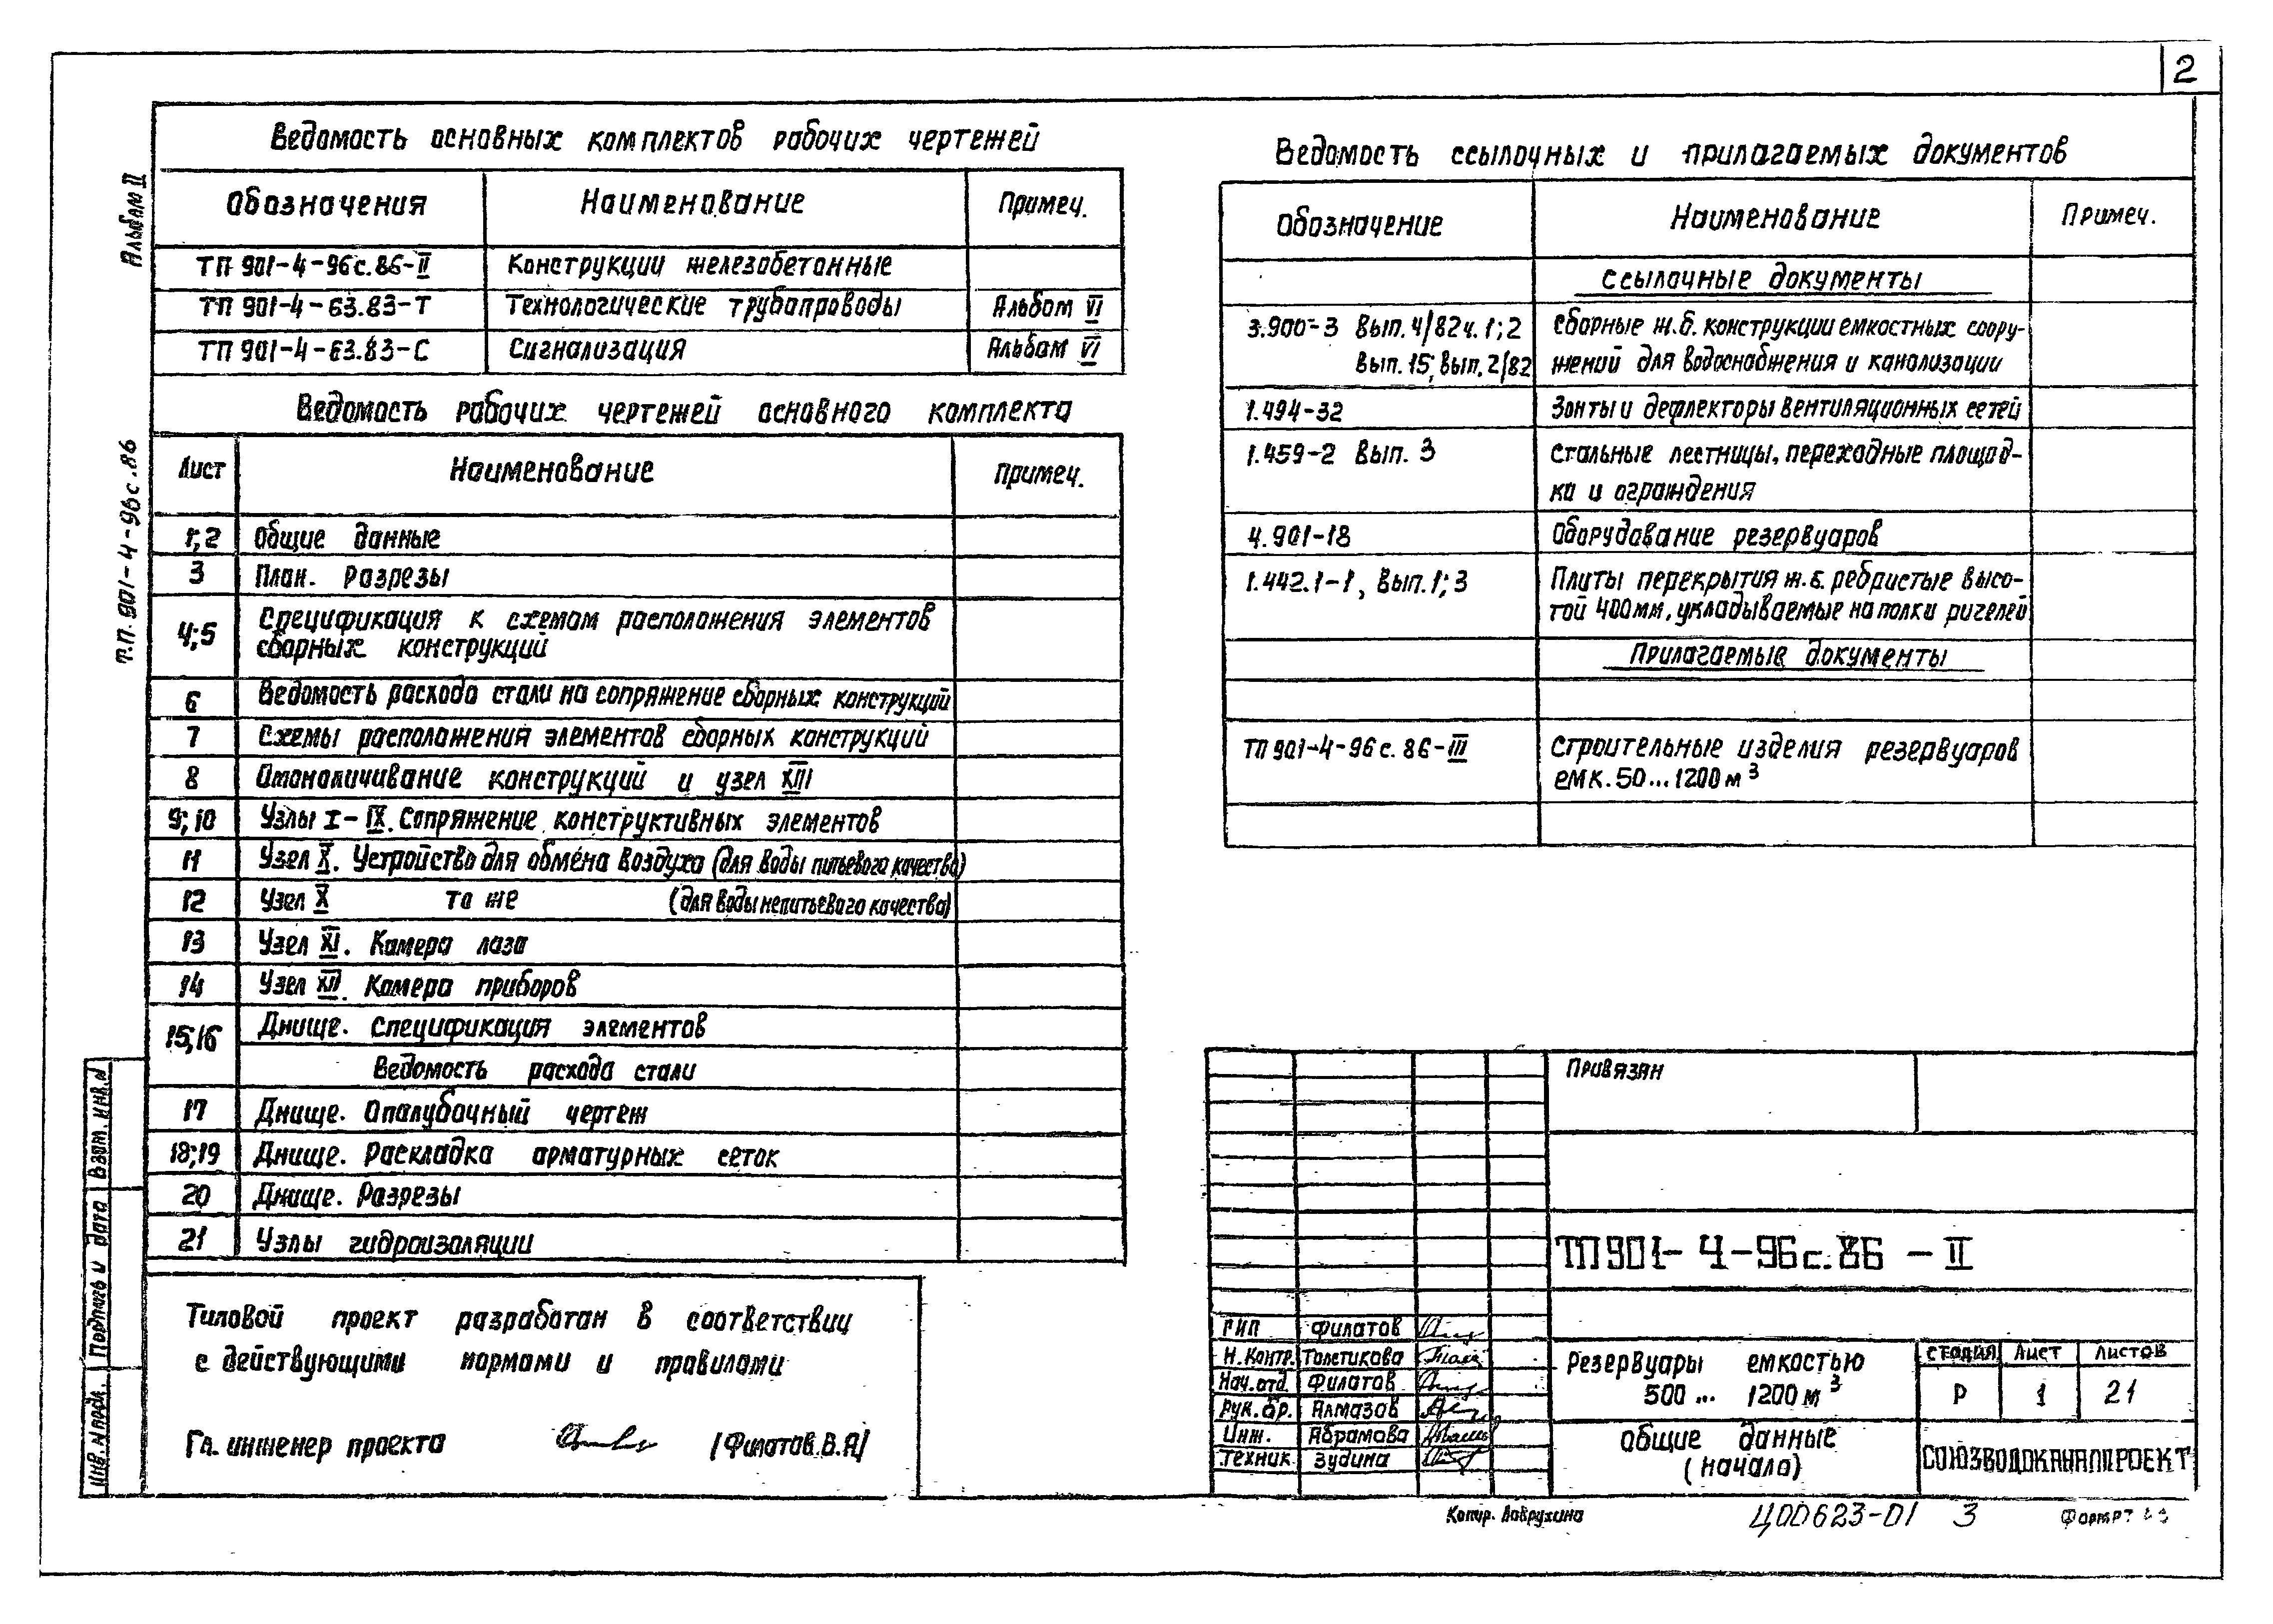 2
Альбом II
Т.П. 901-4-96с.86
Ведомость основных комплектов рабочих чертежей
Обозначения Наименование Примеч.
ТП 901-4-96с.86-II Конструкции железобетонные
ТП 901-4-63.83-Т Технологические трубопроводы Альбом VI
ТП 901-4-63.83-С Сигнализация Альбом VI
Ведомость рабочих чертежей основного комплекта
Лист Наименование Примеч.
1,2 Общие данные
3 План. Разрезы
4;5 Спецификация к схемам расположения элементов
сборных конструкций
6 Ведомость расхода стали на сопряжение сборных конструкций
7 Схемы расположения элементов сборных конструкций
8 Омоноличивание конструкций и узел XIII
9;10 Узлы I-IX. Сопряжение конструктивных элементов
11 Узел X. Устройство для обмена воздуха (для воды питьевого качества)
12 Узел X то же (для воды непитьевого качества)
13 Узел XI. Камера лаза
14 Узел XII. Камера приборов
15;16 Днище. Спецификация элементов
Ведомость расхода стали
17 Днище. Опалубочный чертеж
18;19 Днище. Раскладка арматурных сеток
20 Днище. Разрезы
21 Узлы гидроизоляции
Типовой проект разработан в соответствии
с действующими нормами и правилами
Гл. инженер проекта /Филатов.В.А/
Инв.N подл. Подпись и дата Взам.инв.N
Ведомость ссылочных и прилагаемых документов
Обозначение Наименование Примеч.
Ссылочные документы
3.900-3 Вып.4/82ч.1;2 Сборные ж.б. конструкции емкостных соору-
Вып.15; вып.2/82 жений для водоснабжения и канализации
1.494-32 Зонты и дефлекторы вентиляционных сетей
1.459-2 Вып. 3 Стальные лестницы, переходные площад-
ки и ограждения
4.901-18 Оборудование резервуаров
1.442.1-1, Вып.1;3 Плиты перекрытия ж.б. ребристые высо-
той 400мм, укладываемые на полки ригелей
Прилагаемые документы
ТП 901-4-96с.86-III Строительные изделия резервуаров
емк. 50...1200 м³
Привязан
ТП901-4-96с.86-II
ГИП Филатов
Н.контр. Толстикова
Нач.отд. Филатов
Рук.бр. Алмазов
Инж. Абрамова
Техник Зудина
Резервуары емкостью
500... 1200 м³
Стадия Лист Листов
Р 1 21
Общие данные
(начало)
СОЮЗВОДОКАНАЛПРОЕКТ
Копир. Лаврухина Ц00623-01 3 Формат